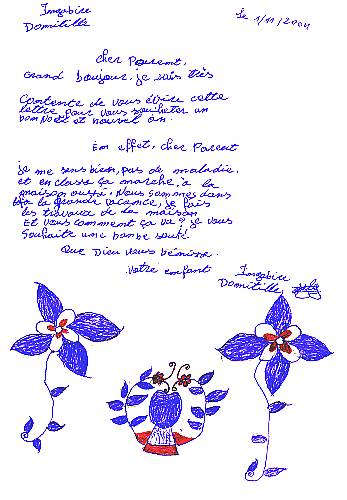 Ingabire
Domitille
le 1/11/2004
cher Parent,
Grand bonjour, je suis très
Contente de vous écrire cette
lettre pour vous souhaiter un
bon Noël et nouvel an.
Em effet, cher Parent
je me sens bien, pas de maladie,
et en classe ça marche, à la
maison aussi. Nous sommes dans
la grande vacance, je fais
les travaux de la maison
Et vous comment ça va? je vous
Souhaite une bonne santé.
Que Dieu vous bénisse.
Votre enfant
Ingabire
Domitille